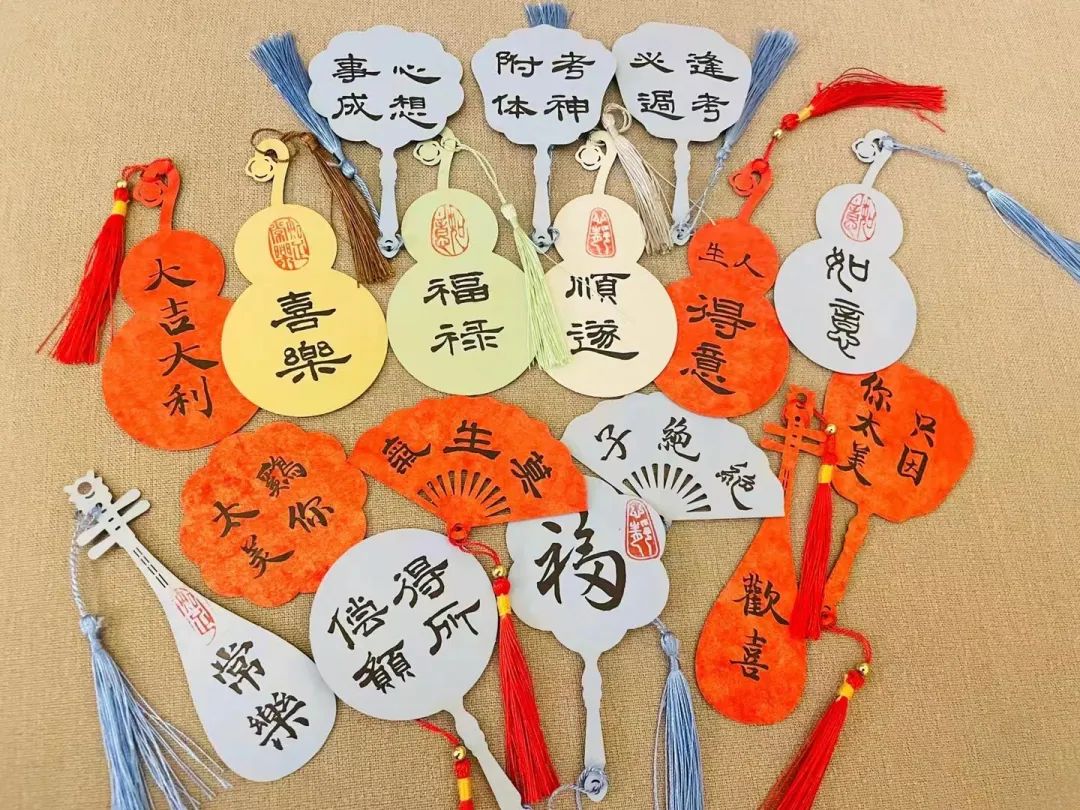 心想
事成
考神
附体
逢考
必過
大吉大利
喜樂
如意
福禄
順遂
人生
得意
如意
如意
鷄你
太美
莫生氣
絶絶子
只因
你太美
常樂
得所
偿願
福
歡喜